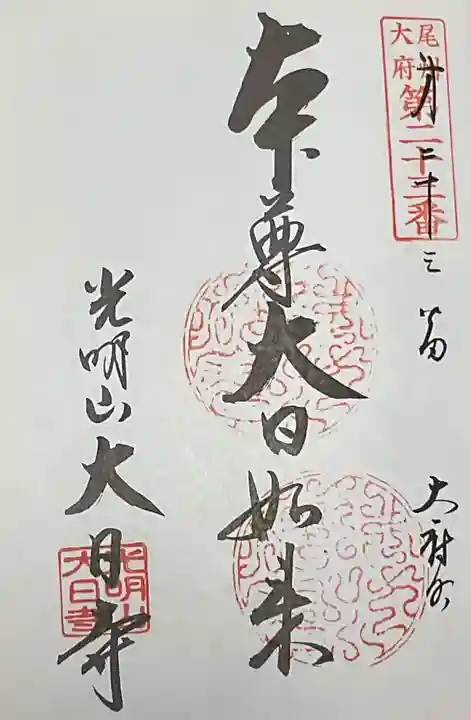 尾州
大府
第二十三番
第二十三番
本尊大日如来
光明山大日寺
光明山
大日寺